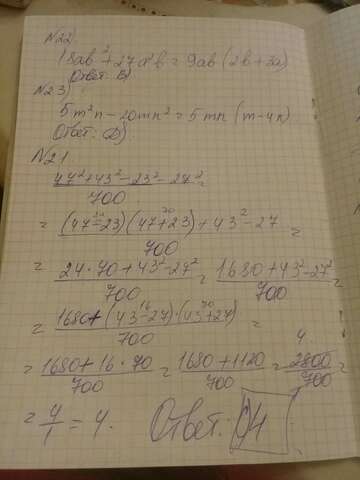 N22.
18ab²+27a²b = 9ab (2b+3a)
Ответ: B)
N23)
5m²n-20mn² = 5mn (m-4n)
Ответ: D)
N21
47²+43²-23²-27² =
700
= (47-23)(47+23)+43²-27 =
24 70
700
= 24·70+43²-27² = 1680+43²-27² =
700 700
= 1680+(43-27)·(43+27) =
16 70
700
= 1680+16·70 = 1680+1120 = 2800 =
4
700 700 700
= 4/1 = 4. Ответ: 4